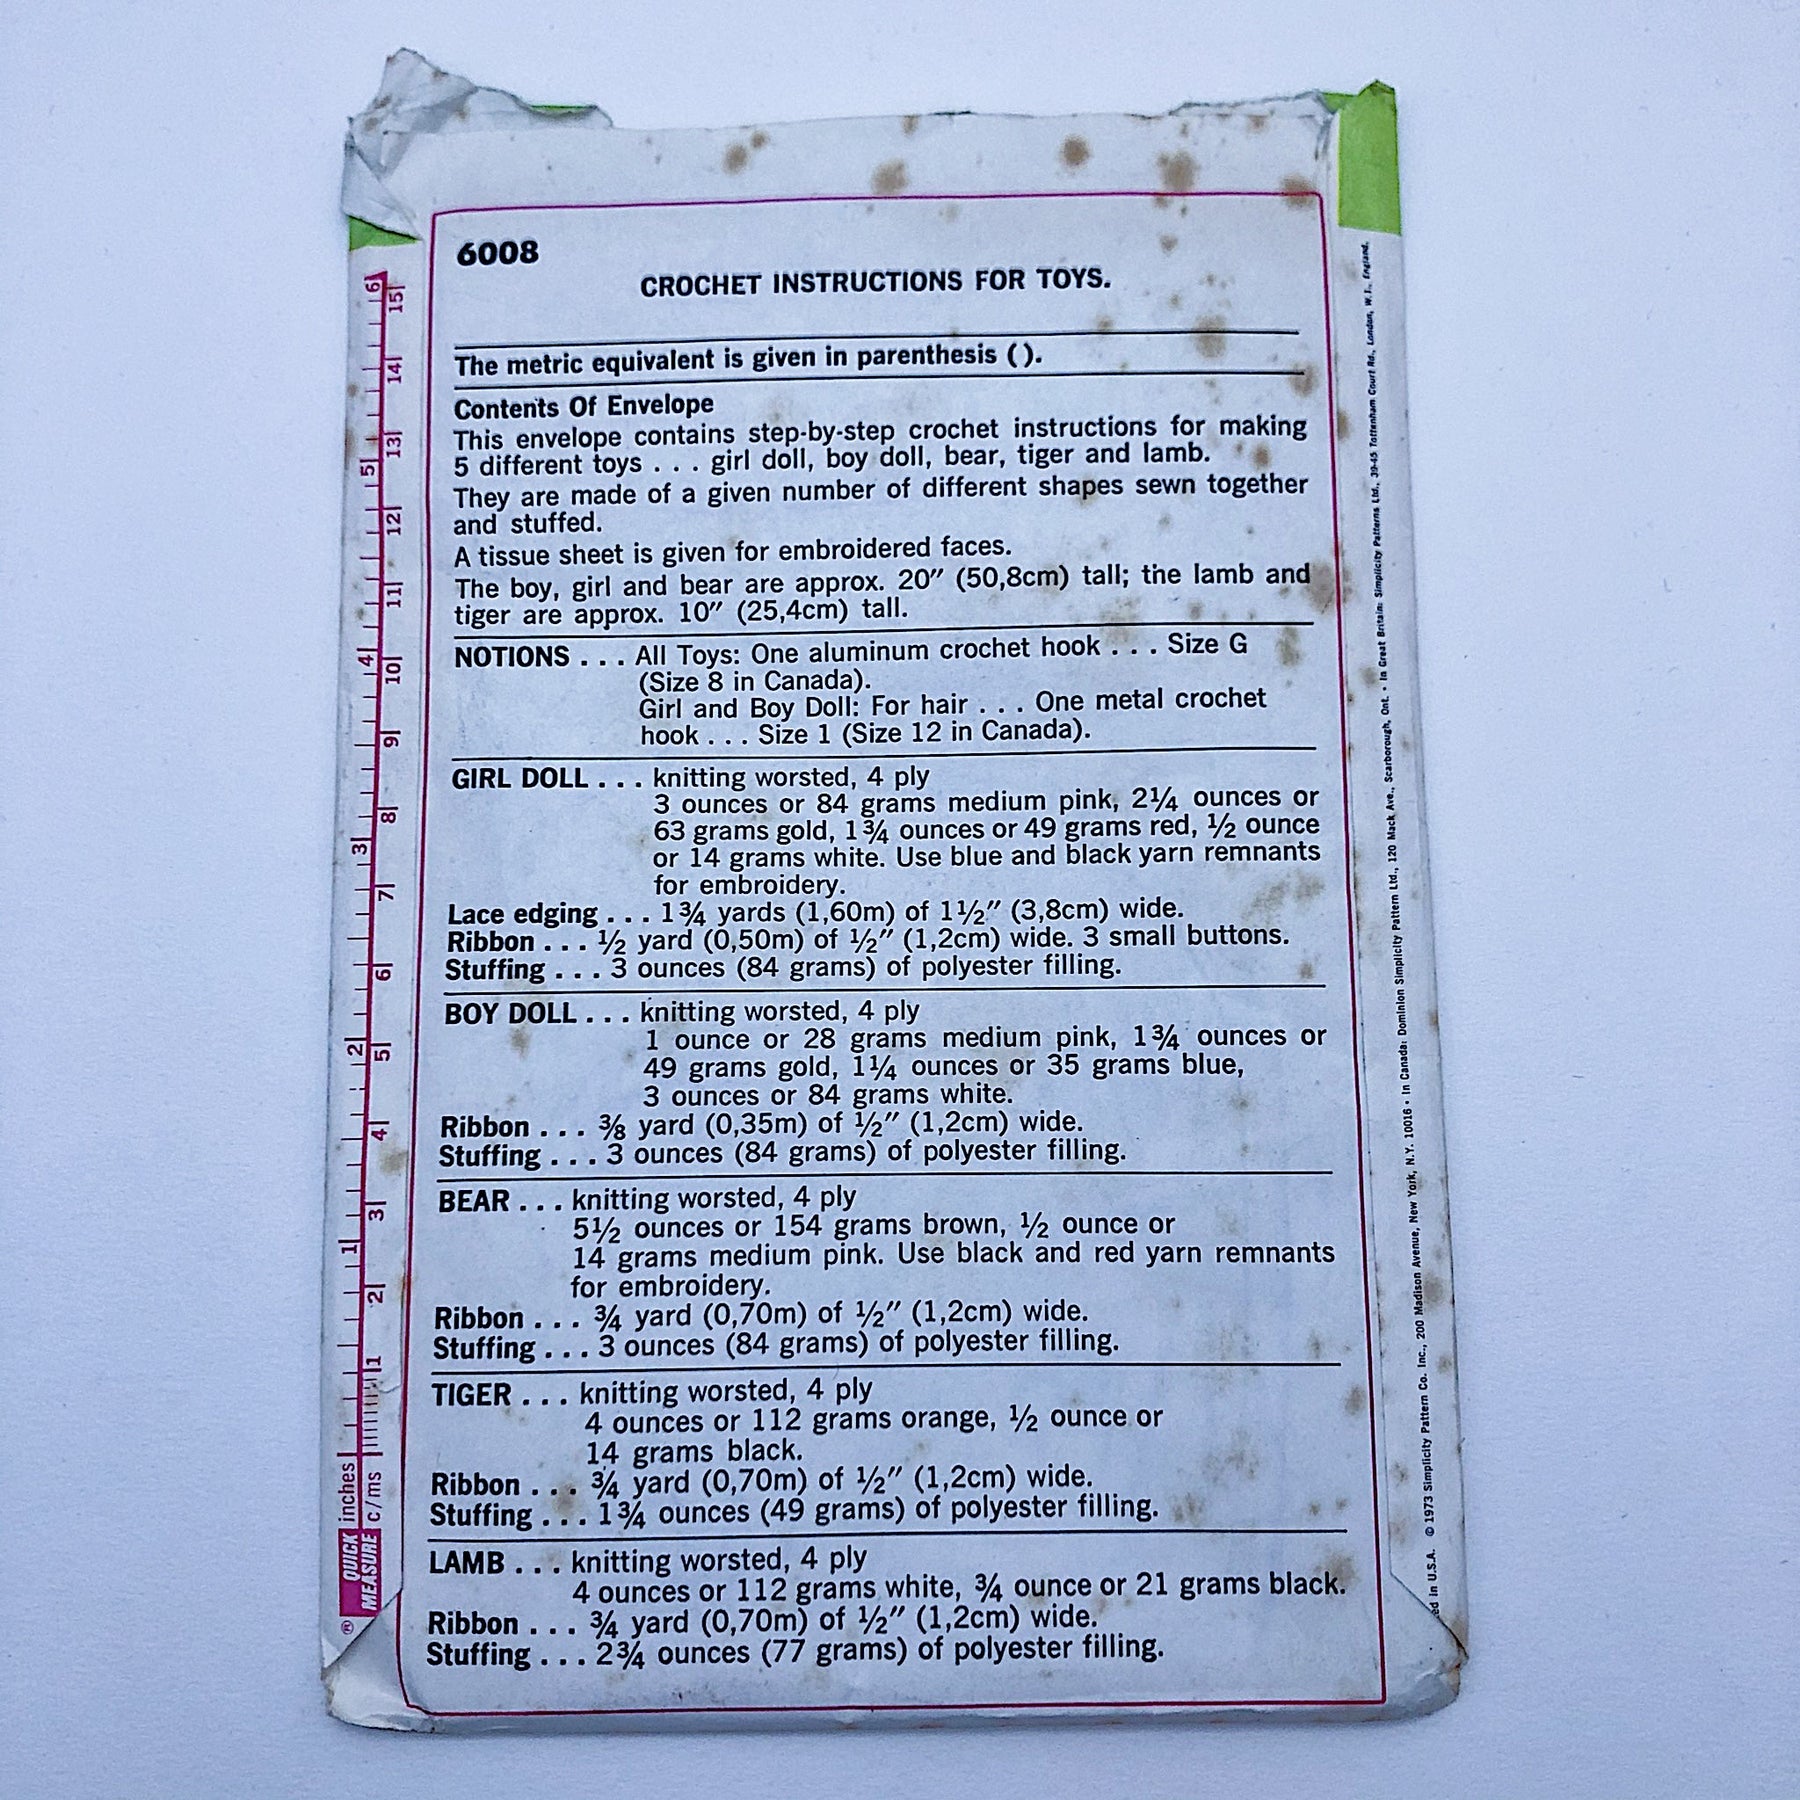 6008
CROCHET INSTRUCTIONS FOR TOYS.
The metric equivalent is given in parenthesis ( ).
Contents Of Envelope
This envelope contains step-by-step crochet instructions for making
5 different toys . . . girl doll, boy doll, bear, tiger and lamb.
They are made of a given number of different shapes sewn together
and stuffed.
A tissue sheet is given for embroidered faces.
The boy, girl and bear are approx. 20″ (50,8cm) tall; the lamb and
tiger are approx. 10″ (25,4cm) tall.
NOTIONS . . . All Toys: One aluminum crochet hook . . . Size G
(Size 8 in Canada).
Girl and Boy Doll: For hair . . . One metal crochet
hook . . . Size 1 (Size 12 in Canada).
GIRL DOLL . . . knitting worsted, 4 ply
3 ounces or 84 grams medium pink, 2¼ ounces or
63 grams gold, 1¾ ounces or 49 grams red, ½ ounce
or 14 grams white. Use blue and black yarn remnants
for embroidery.
Lace edging . . . 1¾ yards (1,60m) of 1½″ (3,8cm) wide.
Ribbon . . . ½ yard (0,50m) of ½″ (1,2cm) wide. 3 small buttons.
Stuffing . . . 3 ounces (84 grams) of polyester filling.
BOY DOLL . . . knitting worsted, 4 ply
1 ounce or 28 grams medium pink, 1¾ ounces or
49 grams gold, 1¼ ounces or 35 grams blue,
3 ounces or 84 grams white.
Ribbon . . . ⅜ yard (0,35m) of ½″ (1,2cm) wide.
Stuffing . . . 3 ounces (84 grams) of polyester filling.
BEAR . . . knitting worsted, 4 ply
5½ ounces or 154 grams brown, ½ ounce or
14 grams medium pink. Use black and red yarn remnants
for embroidery.
Ribbon . . . ¾ yard (0,70m) of ½″ (1,2cm) wide.
Stuffing . . . 3 ounces (84 grams) of polyester filling.
TIGER . . . knitting worsted, 4 ply
4 ounces or 112 grams orange, ½ ounce or
14 grams black.
Ribbon . . . ¾ yard (0,70m) of ½″ (1,2cm) wide.
Stuffing . . . 1¾ ounces (49 grams) of polyester filling.
LAMB . . . knitting worsted, 4 ply
4 ounces or 112 grams white, ¾ ounce or 21 grams black.
Ribbon . . . ¾ yard (0,70m) of ½″ (1,2cm) wide.
Stuffing . . . 2¾ ounces (77 grams) of polyester filling.
® QUICK MEASURE
inches 1 2 3 4 5 6
c/ms 1 2 3 4 5 6 7 8 9 10 11 12 13 14 15
in U.S.A. © 1973 Simplicity Pattern Co. Inc., 200 Madison Avenue, New York, N.Y. 10016 • In Canada: Dominion Simplicity Pattern Ltd., 120 Mack Ave., Scarborough, Ont. • In Great Britain: Simplicity Patterns Ltd., 39-45 Tottenham Court Rd., London, W.1., England.